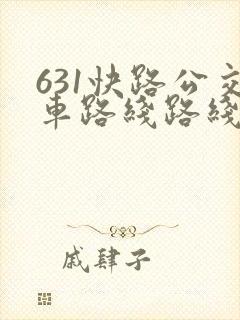 631快路公交
车路线路线
戚肆子